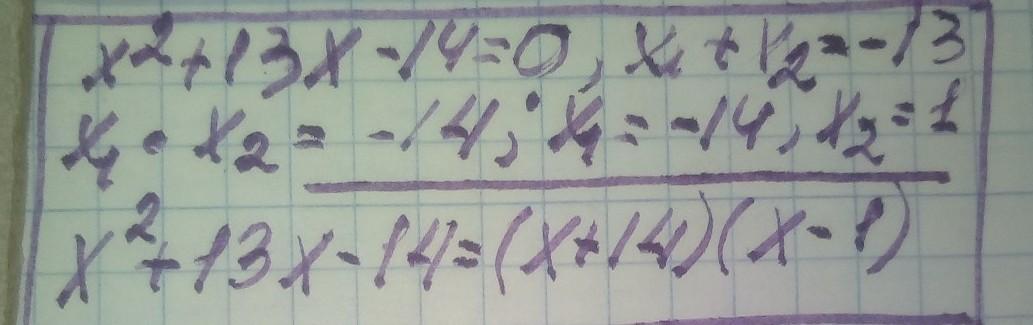 x²+13x-14=0, x₁+x₂=-13
x₁·x₂=-14; x₁=-14, x₂=1
x²+13x-14=(x+14)(x-1)